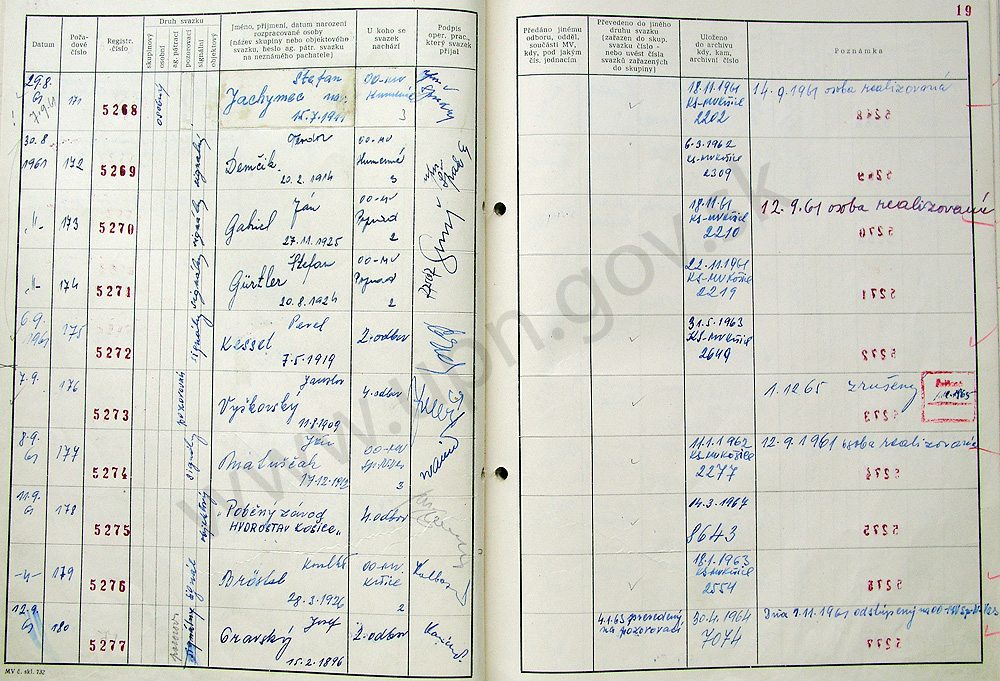 19
Datum
Pořadové číslo
Registr. číslo
Druh svazku
skupinový
osobní
ag. pátrací
pozorovací
signální
objektový
Jméno, příjmení, datum narození
rozpracované osoby
(název skupiny nebo objektového
svazku, heslo ag. pátr. svazku
na neznámého pachatele)
U koho se
svazek
nachází
Podpis
oper. prac.,
který svazek
přijal
Předáno jinému
odboru, odděl.,
součásti MV,
kdy, pod jakým
čís. jednacím
Převedeno do jiného
druhu svazku
(zařazen do skup.
svazku číslo -
nebo uvést čísla
svazků zařazených
do skupiny)
Uloženo
do archivu
kdy, kam,
archivní číslo
Poznámka
29.8.
171
5268
osobný
Štefan
Jachymec nar.
15.7.1911
OO-MV
Humenné
3
18.11.1961
KS-MV Košice
2202
14.9.1961 osoba realizovaná
5268
30.8
1961
172
5269
signálny
Demčik
20.2.1914
OO-MV
Humenné
3
6.3.1962
KS-MV Košice
2309
5269
-"-
173
5270
signálny
Ján
Gabriel
27.11.1925
OO-MV
Poprad
2
18.11.61
KS-MV Košice
2210
12.9.61 osoba realizovaná
5270
-"-
174
5271
signálny
Štefan
Gürtler
20.8.1924
OO-MV
Poprad
2
22.11.1961
KS-MV Košice
2219
5271
6.9.
1961
175
5272
signálny
Pavel
Kessel
7.5.1919
2. odbor
31.5.1963
KS-MV Košice
2649
5272
7.9.
176
5273
pozorovací
Jaroslav
Vyškovský
11.8.1909
4. odbor
1.12.65 zrušený
5273
8.9.
61
177
5274
signálny
Ján
OO-MV
3
11.1.1962
KS-MV Košice
2277
12.9.1961 osoba realizovaná
5274
11.9.
61
178
5275
objektový
"Pobočný závod
HYDROSTAV KOŠICE"
4. odbor
14.3.1967
8643
5275
-"-
179
5276
28.3.1926
OO-MV
Košice
2
18.1.1963
KS-MV Košice
2554
5276
12.9.
61
180
5277
signálny
Jozef
Oravský
15.2.1896
2. odbor
4.1.63 prevedený
na pozorovací
30.4.1964
7074
5277
MV č. skl. 732
www.upn.gov.sk